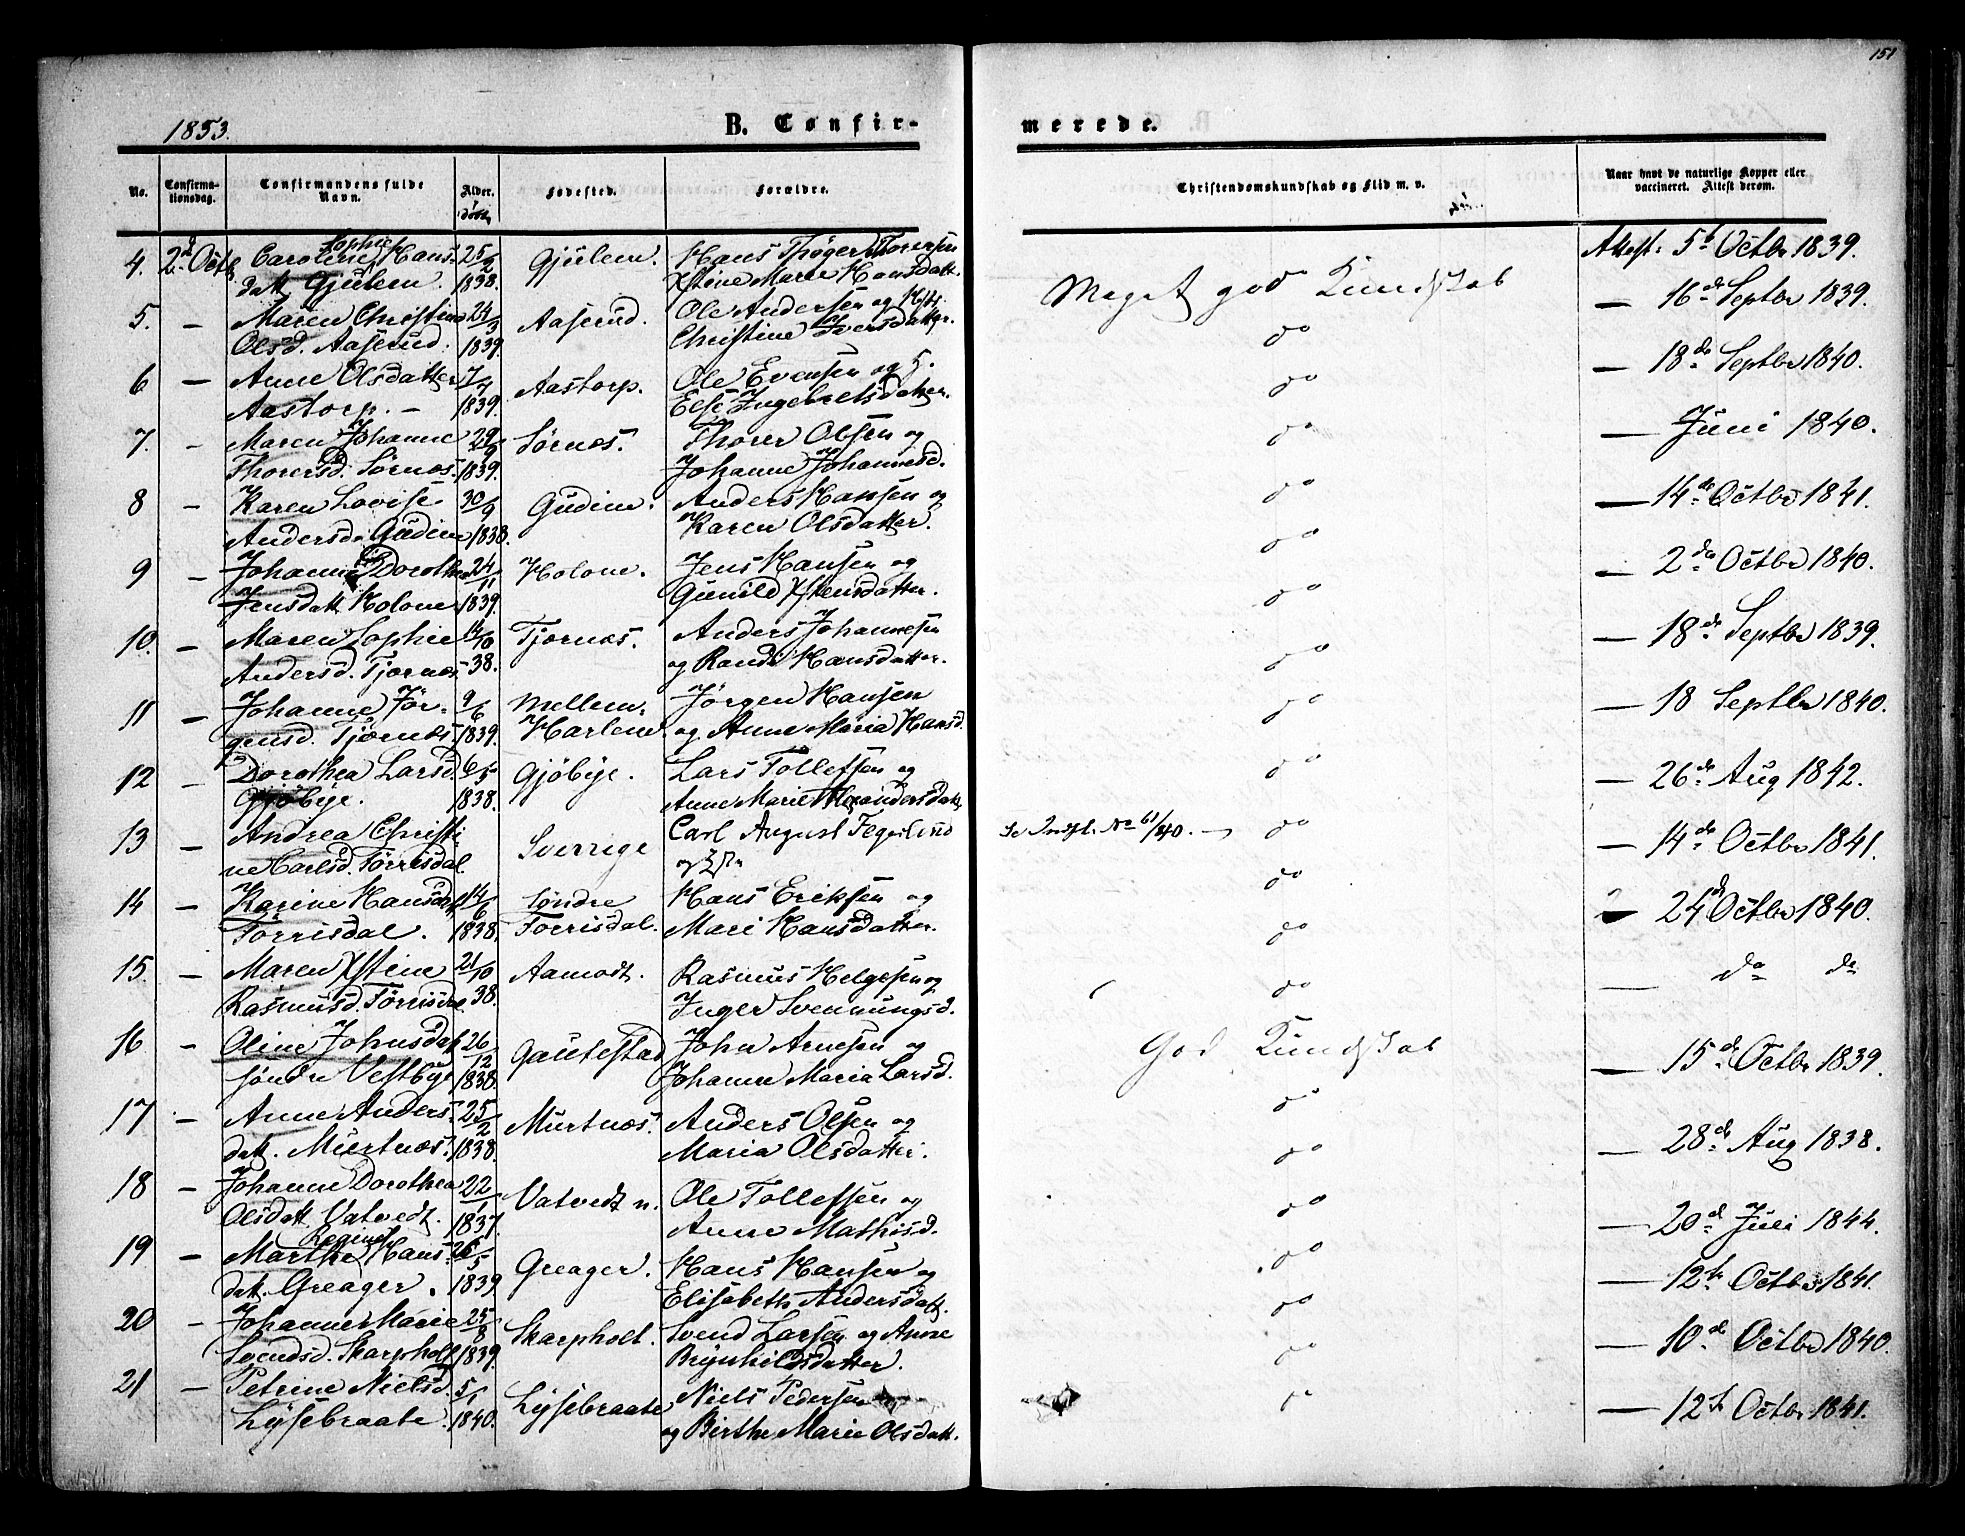 151
1853. B. Confir- merede.
No. Confirma-tionsdag. Confirmandens fulde Navn. Alder. Fødested. Forældre. Christendomskundskab og Flid m. v. Naar havt de naturlige Kopper eller vaccineret. Attest derom.
født
Sophie
4. 2d Octb. Caroline Hans- 25/2 Gjulem. Hans Thøger Thoresen Attest: 5t Octbr 1839.
datt Gjulem. 1838. Xstine Marie Hansdatt. Meget god Kundskab
5. – Maren Christine 24/3 Aaserud. Ole Andersen og — 16de Septbr 1839.
Olsd. Aaserud. 1839. Christine Iversdatter. do
6 – Anne Olsdatter 7/4 Aastorp. Ole Evensen og — 18de Septbr 1840.
Aastorp. – 1839. Else Ingebretsdatter. do
7. – Maren Johanne 29/9 Sørnæs. Thorer Olsen og do — Juni 1840.
Thorersd. Sørnæs. 1839. Johanne Johannesd.
8 – Karen Lovise 30/9 Gudim. Anders Hansen og do — 14de Octbr 1841.
Andersd. Gudim 1838. Karen Olsdatter.
9 – Johanne Dorothea 24/11 Holone. Jens Hansen og do — 2den Octbr 1840.
Jensdatt Holone 1839. Gunild Xstensdatter.
10. – Maren Sophie 14/10 Tjernæs. Anders Johannesen do — 18de Septbr 1839.
Andersd. Tjernæs 38. og Randi Hansdatter.
11 – Johanne Jør- 9/6 Mellem- Jørgen Hansen do — 18 Septbr 1840.
gensd. Tjernæs. 1839. Harlem og Anne Maria Hansd.
12 – Dorothea Larsd. 6/5 Gjøbye. Lars Tollefsen og do — 26de Aug 1842.
Gjøbye. 1838. Anne Marie Alexandersdatt.
13 – Andrea Christi Sverrige Carl August Fegerlund Se Indfl. No 61/40. – do — 14de Octbr 1841.
ne Carlsd. Torrisdal. og
14 – Karine Hansdatt 14/6 Søndre Hans Eriksen og do — 24d Octbr 1840.
Torrisdal. 1838. Torrisdal. Mari Hansdatter.
15. – Maren Xstine 21/10 Aamodt. Rasmus Helgesen og do — do do
Rasmusd. 38. Inger Svennungsd.
16 – Oline Johnsdatt 26/12 Gautestad John Arnesen og God Kundskab — 15de Octbr 1839.
søndre Vestbye 1838. Johanne Maria Larsd.
17 – Anne Anders- 25/2 Murtnæs. Anders Olsen og do — 28de Aug 1838.
datt. Murtnæs. 1838. Maria Olsdatter.
18 – Johanne Dorothea 22/1 Vatvedt n. Ole Tollefsen og do — 20de Juli 1844.
Olsdatt. Vatvedt. 1837. Anne Mathisd.
Regine
19 – Marthe Hans- 26/5 Greager. Hans Hansen og do — 12te Octbr 1841.
datt. Greager. 1839 Elisabeth Andersdatt.
20 – Johanne Marie 25/8 Skarpholt. Svend Larsen og Anne do — 10de Octbr 1840.
Svendsd. Skarpholt 1839. Brynhildsdatter.
21 – Petrine Nielsd. 5/1 Lysebraate Niels Pedersen — 12te Octbr 1841.
Lysebraate. 1840. og Birthe Marie Olsdatt.